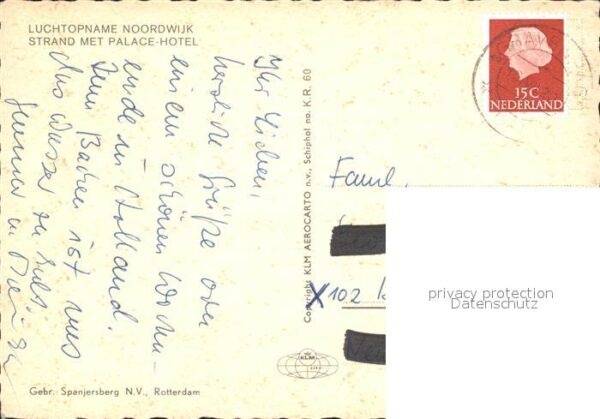 LUCHTOPNAME NOORDWIJK
STRAND MET PALACE-HOTEL
Ihr Lieben,
herzliche Grüße von
einem schönen Wochen-
ende in Holland.
Zum Baden ist uns
das Wasser zu kalt.
Copyright KLM AEROCARTO n.v., Schiphol no. K.R. 60
KLM
Gebr. Spanjersberg N.V., Rotterdam
15C
NEDERLAND
Faml.
X 102
privacy protection
Datenschutz